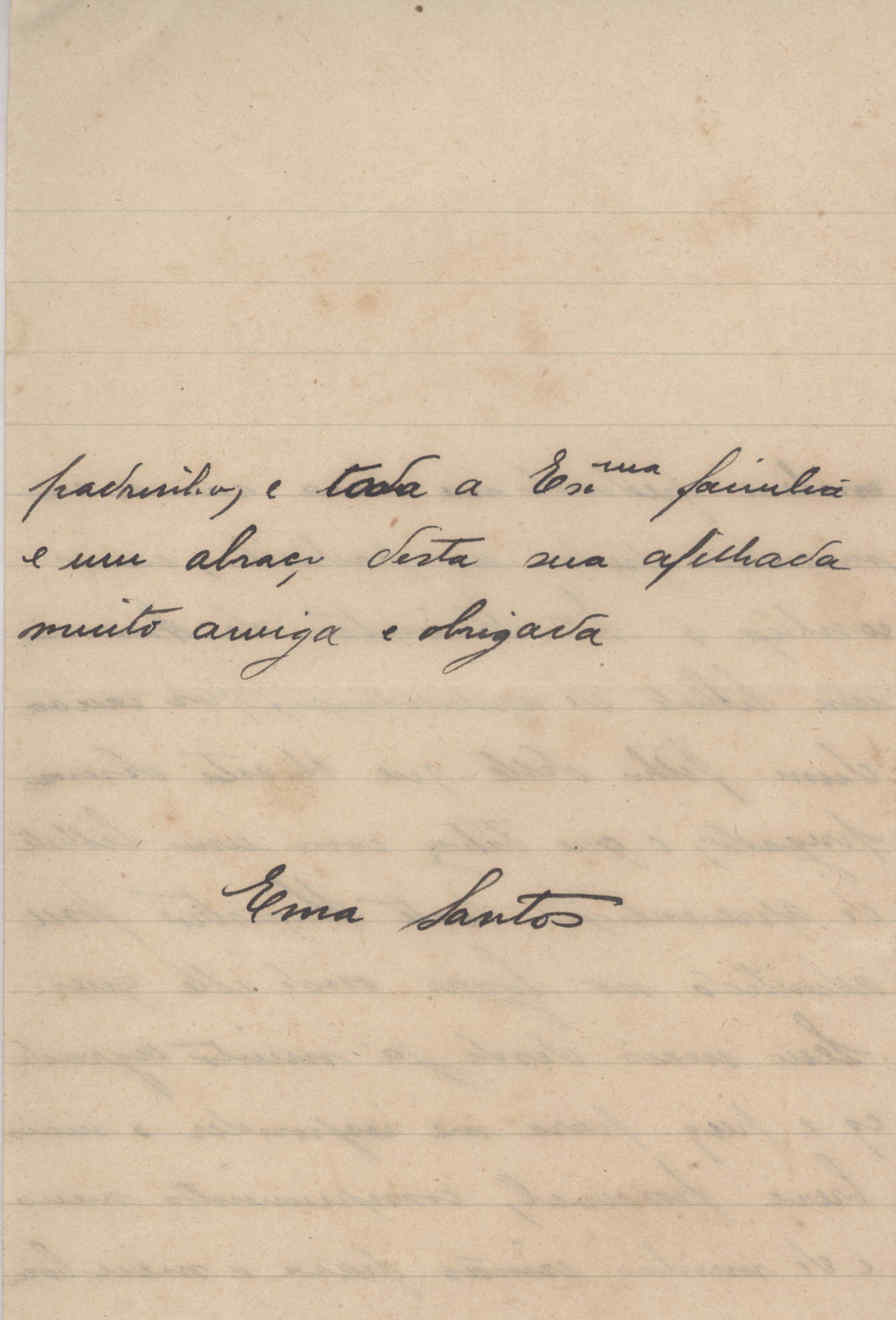 padrinho, e toda a Exma familia
e um abraço desta sua afilhada
muito amiga e obrigada
Ema Santos